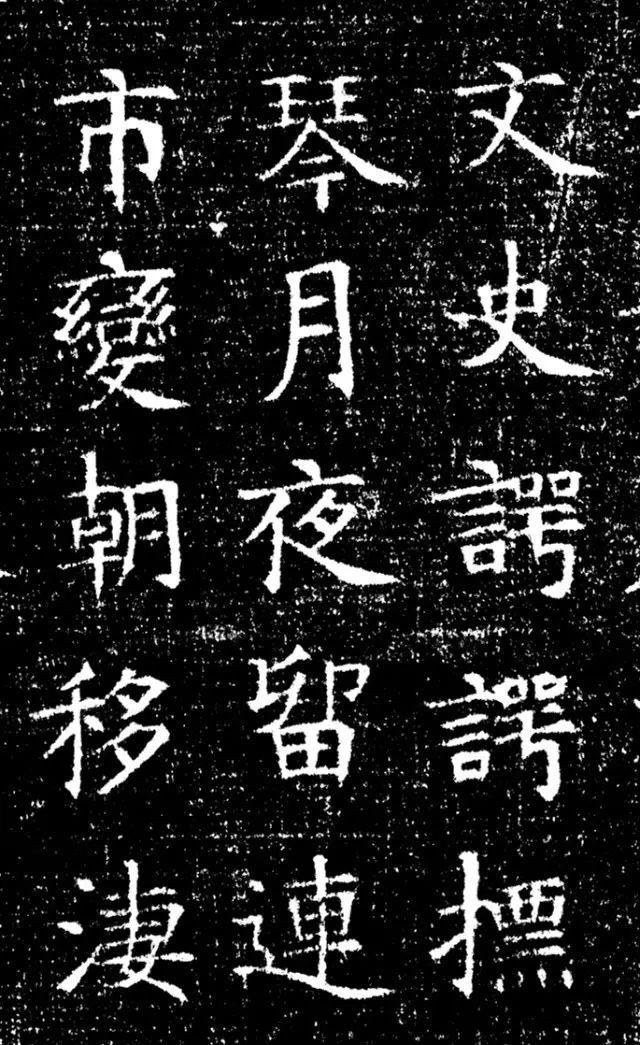 文史諤諤摽
琴月夜留連
市變朝移淒